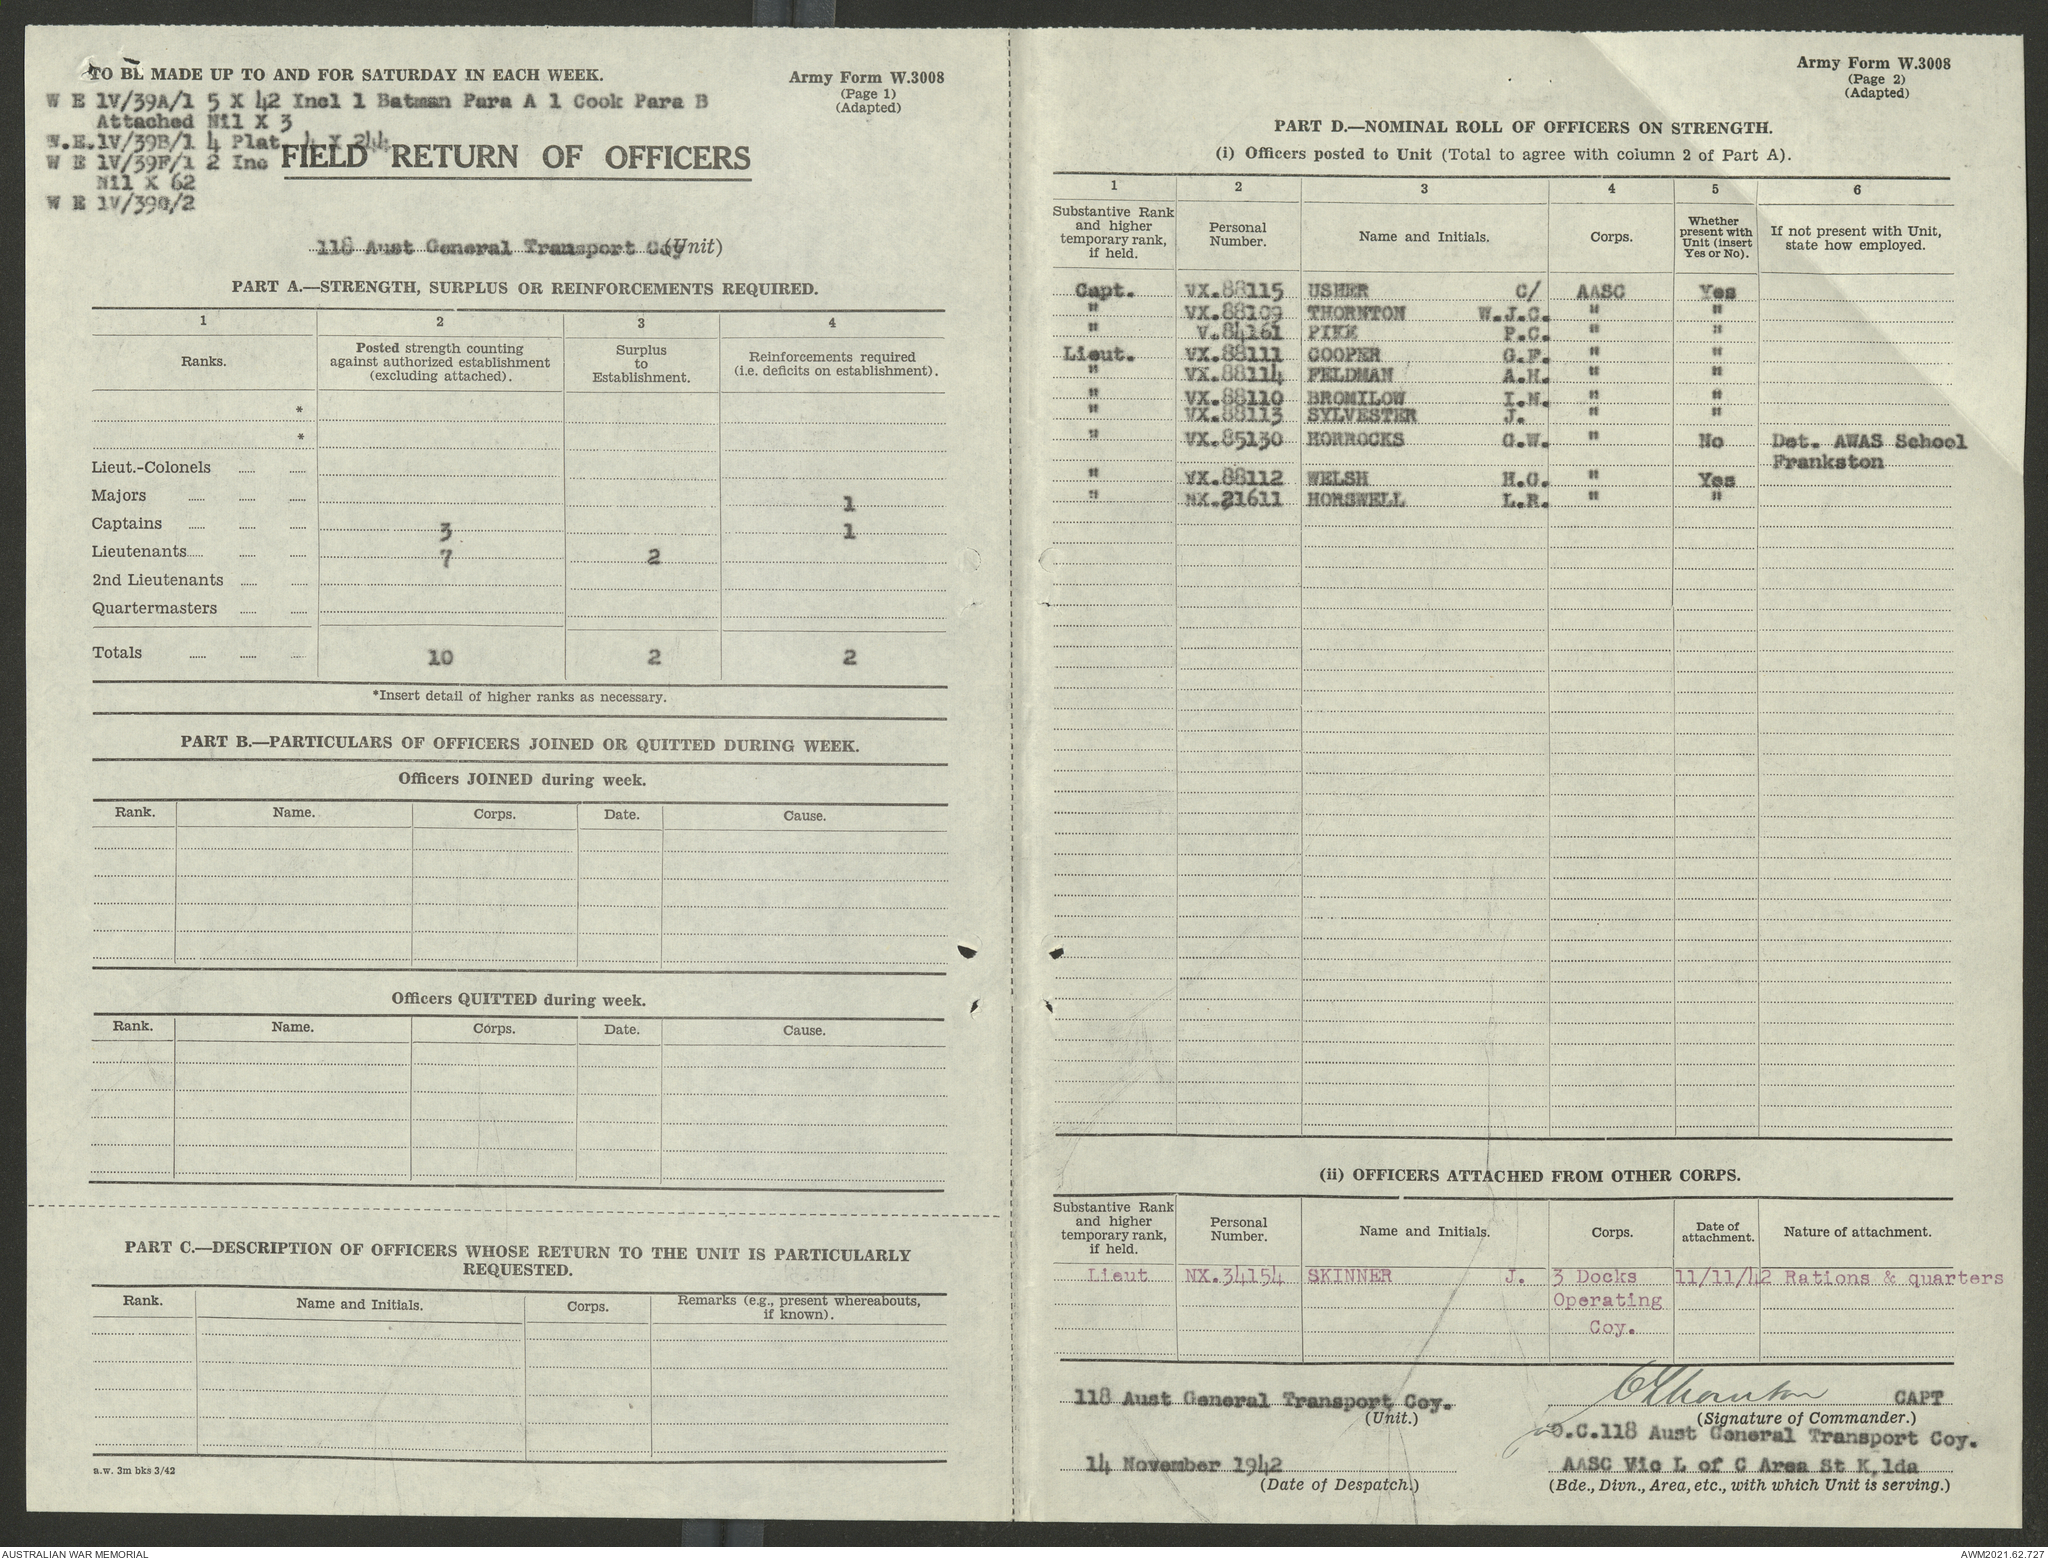 TO BE MADE UP TO AND FOR SATURDAY IN EACH WEEK.
Army Form W.3008
(Page 1)
(Adapted)
W E 1V/39A/1 5 X 42 Incl 1 Batman Para A 1 Cook Para B
Attached Nil X 3
W.E.1V/39B/1 4 Plat. 4 X 244
W E 1V/39F/1 2 Inc
Nil X 62
W E 1V/39G/2
FIELD RETURN OF OFFICERS
118 Aust General Transport Coy (Unit)
PART A.—STRENGTH, SURPLUS OR REINFORCEMENTS REQUIRED.
1 2 3 4
Ranks. Posted strength counting against authorized establishment (excluding attached). Surplus to Establishment. Reinforcements required (i.e. deficits on establishment).
*
*
Lieut.-Colonels
Majors 1
Captains 3 1
Lieutenants 7 2
2nd Lieutenants
Quartermasters
Totals 10 2 2
*Insert detail of higher ranks as necessary.
PART B.—PARTICULARS OF OFFICERS JOINED OR QUITTED DURING WEEK.
Officers JOINED during week.
Rank. Name. Corps. Date. Cause.
Officers QUITTED during week.
Rank. Name. Corps. Date. Cause.
PART C.—DESCRIPTION OF OFFICERS WHOSE RETURN TO THE UNIT IS PARTICULARLY
REQUESTED.
Rank. Name and Initials. Corps. Remarks (e.g., present whereabouts, if known).
a.w. 3m bks 3/42
Army Form W.3008
(Page 2)
(Adapted)
PART D.—NOMINAL ROLL OF OFFICERS ON STRENGTH.
(i) Officers posted to Unit (Total to agree with column 2 of Part A).
1 2 3 4 5 6
Substantive Rank and higher temporary rank, if held. Personal Number. Name and Initials. Corps. Whether present with Unit (insert Yes or No). If not present with Unit, state how employed.
Capt. VX.88115 USHER C/ AASC Yes
" VX.88109 THORNTON W.J.C. " "
" V.84161 PIKE P.C. " "
Lieut. VX.88111 COOPER G.F. " "
" VX.88114 FELDMAN A.H. " "
" VX.88110 BROMILOW I.N. " "
" VX.88113 SYLVESTER J. " "
" VX.85130 HORROCKS G.W. " No Det. AWAS School
Frankston
" VX.88112 WELSH H.G. " Yes
" NX.21611 HORSWELL L.R. " "
(ii) OFFICERS ATTACHED FROM OTHER CORPS.
Substantive Rank and higher temporary rank, if held. Personal Number. Name and Initials. Corps. Date of attachment. Nature of attachment.
Lieut NX.34154 SKINNER J. 3 Docks 11/11/42 Rations & quarters
Operating
Coy.
118 Aust General Transport Coy.
(Unit.)
Thornton CAPT
(Signature of Commander.)
O.C.118 Aust General Transport Coy.
14 November 1942
(Date of Despatch.)
AASC Vic L of C Area St K,lda
(Bde., Divn., Area, etc., with which Unit is serving.)
AUSTRALIAN WAR MEMORIAL
AWM2021.62.727